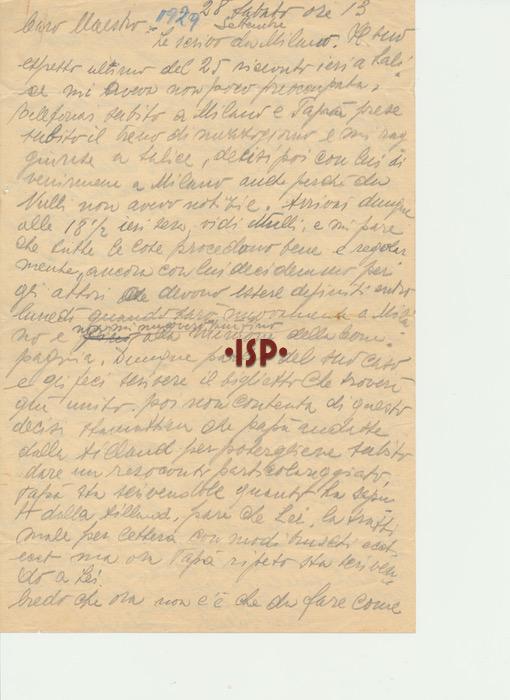 1929 28 sabato ore 13
Settembre
Caro Maestro
Le scrivo da Milano. Il suo
espresso ultimo del 25 ieri a Sali
ce mi aveva non poco preoccupata,
telefonai subito a Milano e Papà prese
subito il treno di mezzogiorno e mi rag
giunse a Salice, decisi poi con lui di
venirmene a Milano anche perché da
Nulli non avevo notizie. Arrivai dunque
alle 18½ ieri sera, vidi Nulli, e mi pare
che tutte le cose procedano bene e regolar
mente, ancora con lui decidemmo per
gli attori che devono essere definiti entro
lunedì quando sarò nuovamente a Mila
no e alla della Com
pagnia. Dunque del suo caso
e gli feci scrivere il biglietto che troverà
qui unito. poi non contenta di questo
decisi stamattina che papà andasse
dalla per potergliene subito
dare un resoconto particolareggiato,
Papà sta scrivendole quanto ha sapu
to dalla pare che Lei, la tratti
male per lettera con modi bruschi ecct.
ecct ma ora Papà ripeto sta scriven
do a Lei.
Credo che ora non c'è che da fare come
ISP